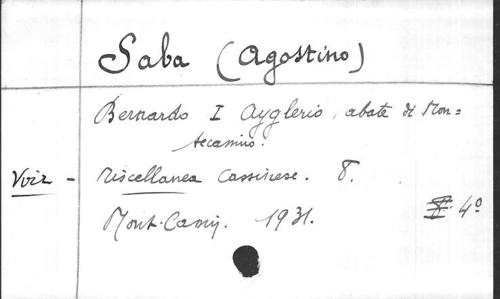 Saba (Agostino)
Bernardo I Ayglerio, abate di Mon=
tecassino.
Voir - Miscellanea Cassinese. 8.
Mont-Cassin. 1931. 4°